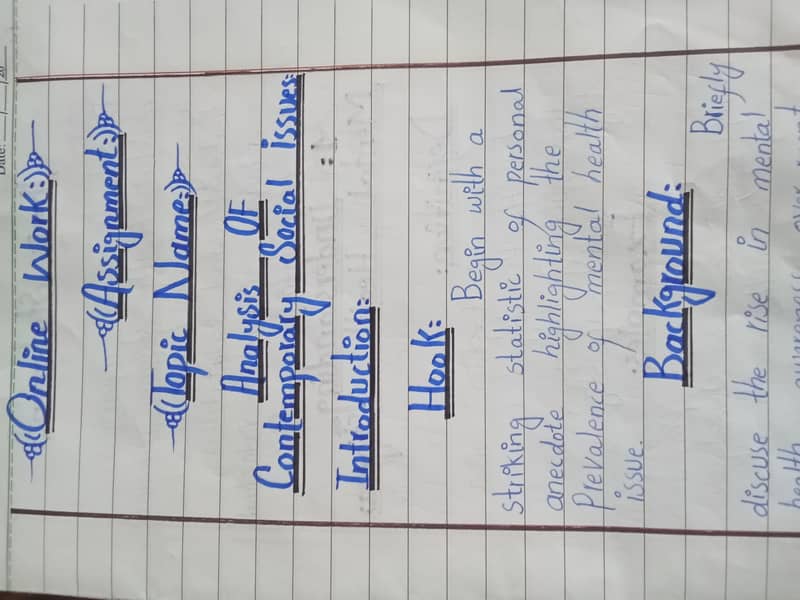 Date: __/__/20
Online Work:
Assignment:
Topic Name:
Analysis OF
Contemporaty Social issues:
Introduction:
Hook:
Begin with a
striking statistic of personal
anecdote highlighting the
Prevalence of mental health
issue.
Background:
Briefly
discuse the rise in mental
health awareness over recent